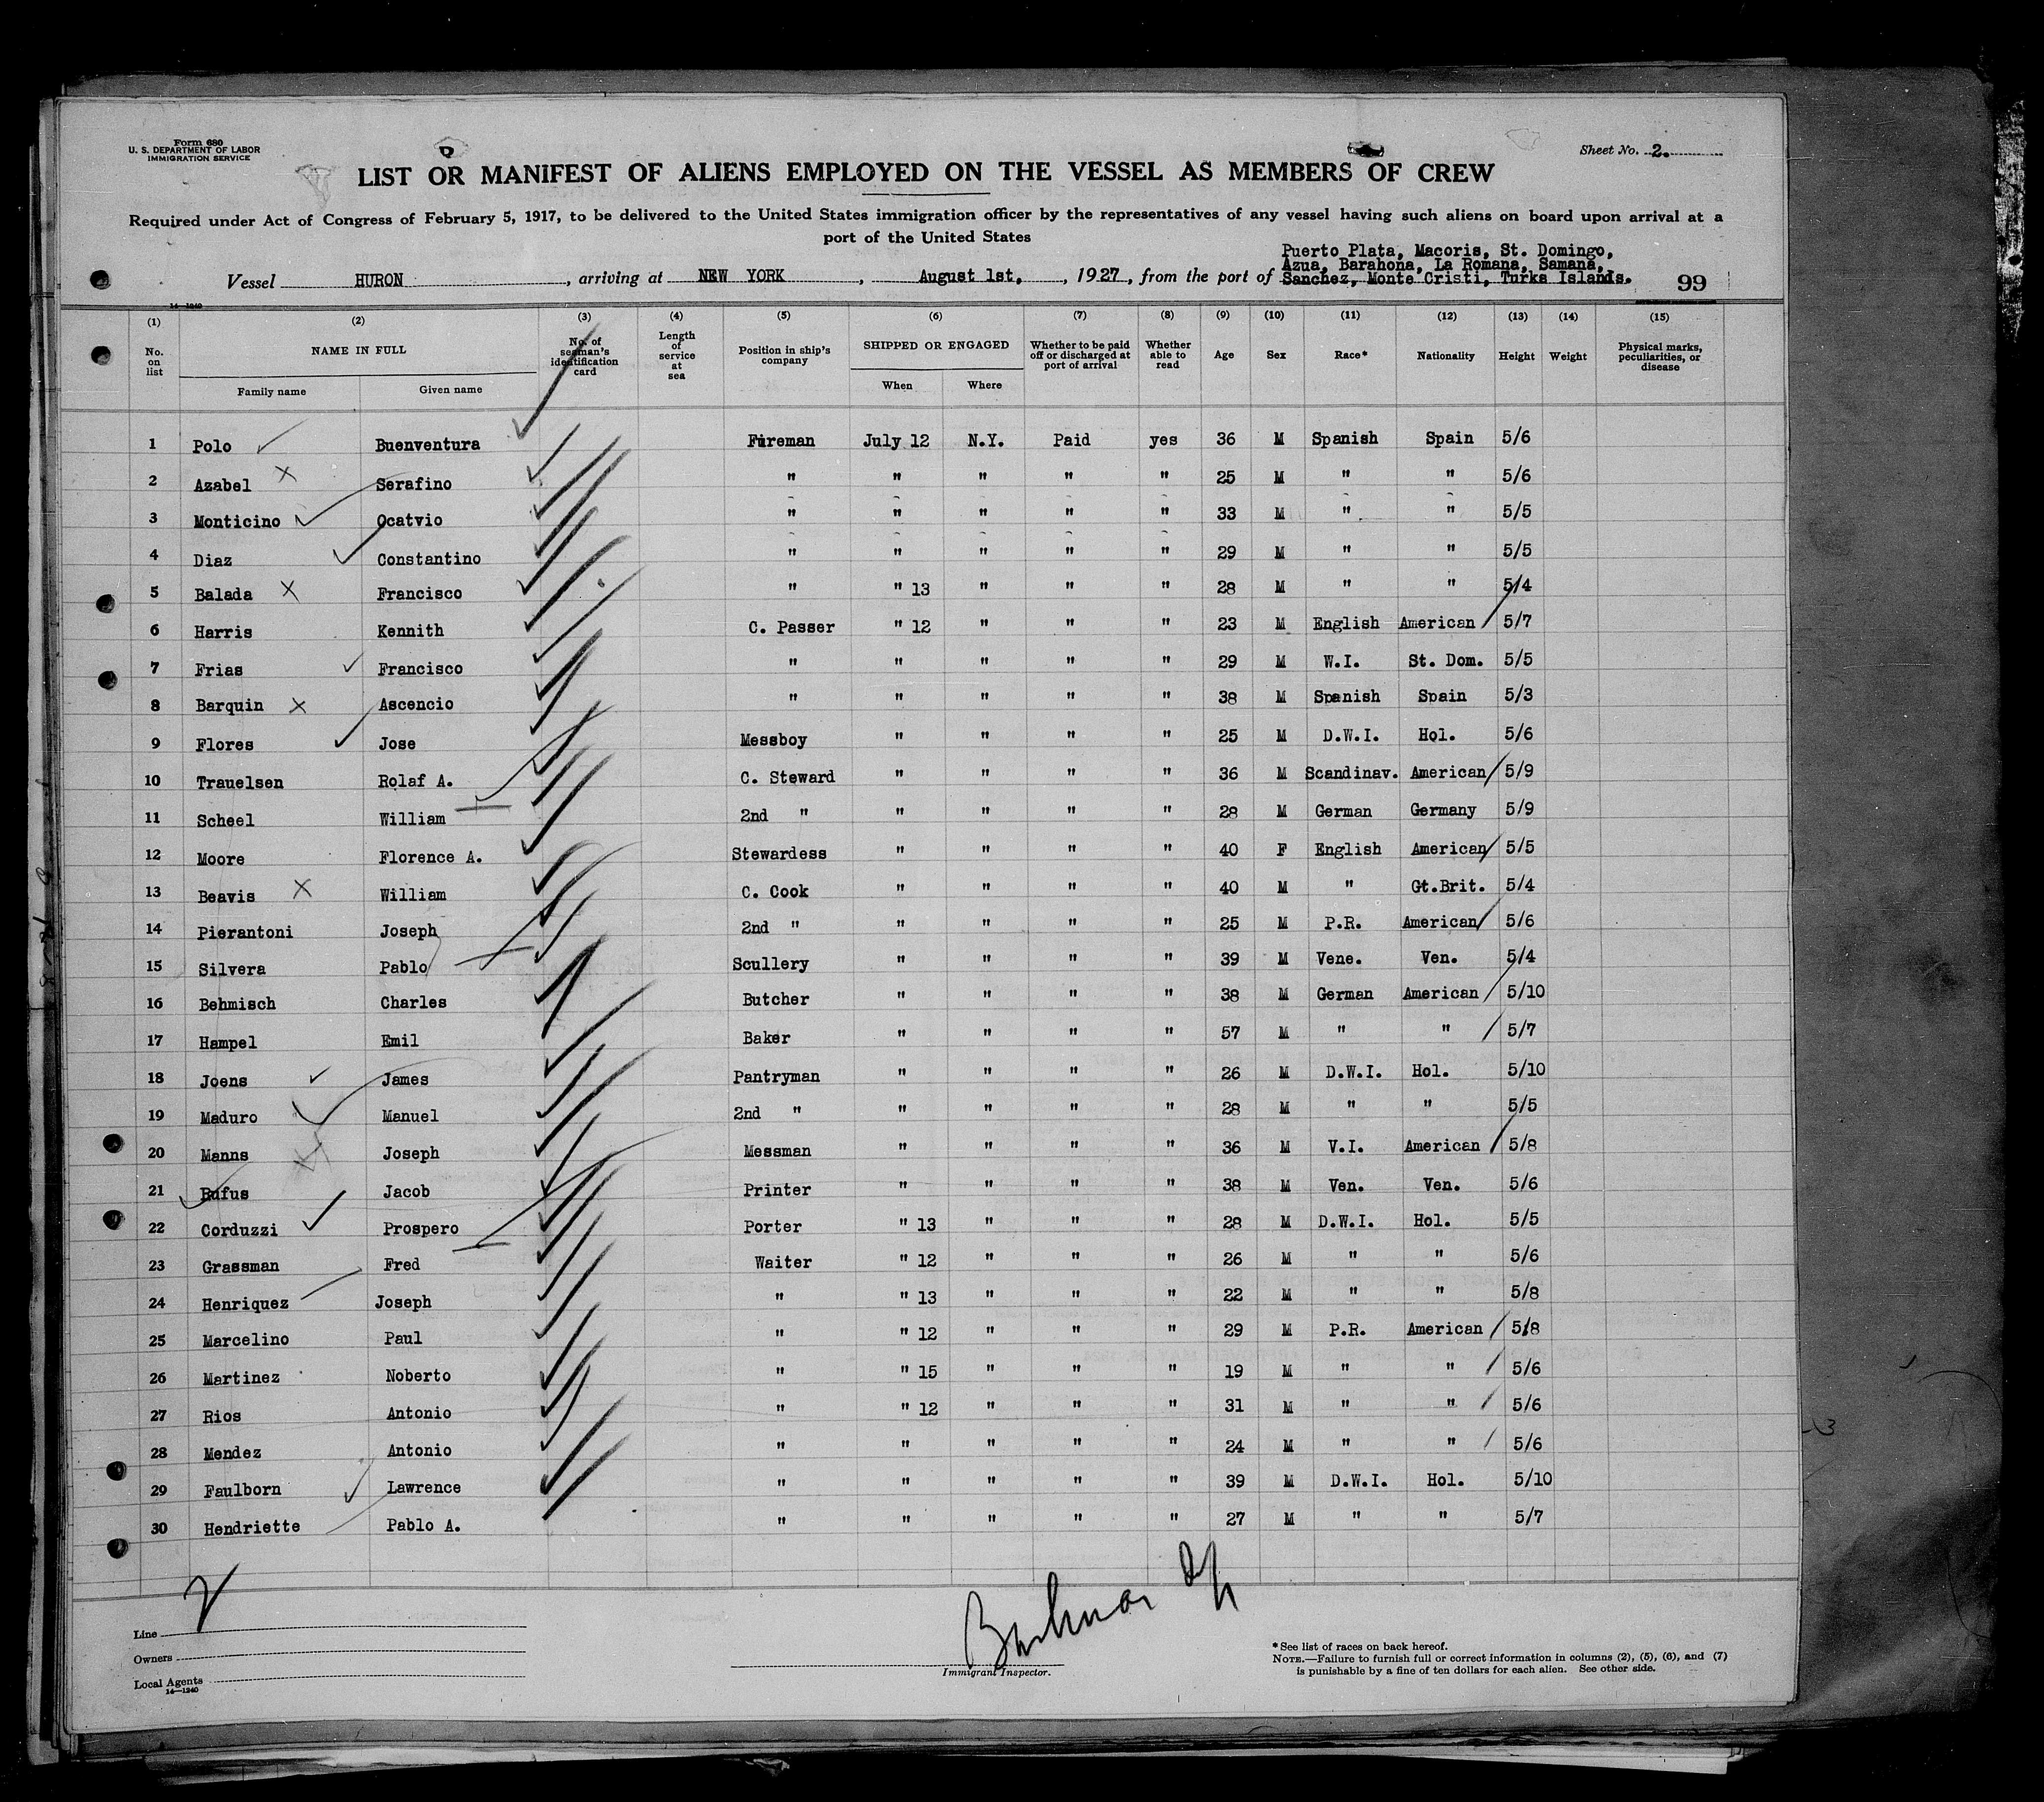 Form 680
U. S. DEPARTMENT OF LABOR
IMMIGRATION SERVICE
Sheet No. 2.
LIST OR MANIFEST OF ALIENS EMPLOYED ON THE VESSEL AS MEMBERS OF CREW
Required under Act of Congress of February 5, 1917, to be delivered to the United States immigration officer by the representatives of any vessel having such aliens on board upon arrival at a
port of the United States
Puerto Plata, Macoris, St. Domingo,
Azua, Barahona, La Romana, Samana,
Vessel HURON, arriving at NEW YORK, August 1st, 1927, from the port of Sanchez, Monte Cristi, Turks Islands. 99
14—1240
(1) (2) (3) (4) (5) (6) (7) (8) (9) (10) (11) (12) (13) (14) (15)
No. on list NAME IN FULL No. of seaman's identification card Length of service at sea Position in ship's company SHIPPED OR ENGAGED Whether to be paid off or discharged at port of arrival Whether able to read Age Sex Race* Nationality Height Weight Physical marks, peculiarities, or disease
Family name Given name When Where
1 Polo Buenventura Fireman July 12 N.Y. Paid yes 36 M Spanish Spain 5/6
2 Azabel Serafino " " " " " 25 M " " 5/6
3 Monticino Ocatvio " " " " " 33 M " " 5/5
4 Diaz Constantino " " " " " 29 M " " 5/5
5 Balada Francisco " " 13 " " " 28 M " " 5/4
6 Harris Kennith C. Passer " 12 " " " 23 M English American 5/7
7 Frias Francisco " " " " " 29 M W.I. St. Dom. 5/5
8 Barquin Ascencio " " " " " 38 M Spanish Spain 5/3
9 Flores Jose Messboy " " " " 25 M D.W.I. Hol. 5/6
10 Trauelsen Rolaf A. C. Steward " " " " 36 M Scandinav. American 5/9
11 Scheel William 2nd " " " " " 28 M German Germany 5/9
12 Moore Florence A. Stewardess " " " " 40 F English American 5/5
13 Beavis William C. Cook " " " " 40 M " Gt.Brit. 5/4
14 Pierantoni Joseph 2nd " " " " " 25 M P.R. American 5/6
15 Silvera Pablo Scullery " " " " 39 M Vene. Ven. 5/4
16 Behmisch Charles Butcher " " " " 38 M German American 5/10
17 Hampel Emil Baker " " " " 57 M " " 5/7
18 Joens James Pantryman " " " " 26 M D.W.I. Hol. 5/10
19 Maduro Manuel 2nd " " " " " 28 M " " 5/5
20 Manns Joseph Messman " " " " 36 M V.I. American 5/8
21 Rufus Jacob Printer " " " " 38 M Ven. Ven. 5/6
22 Corduzzi Prospero Porter " 13 " " " 28 M D.W.I. Hol. 5/5
23 Grassman Fred Waiter " 12 " " " 26 M " " 5/6
24 Henriquez Joseph " " 13 " " " 22 M " " 5/8
25 Marcelino Paul " " 12 " " " 29 M P.R. American 5/8
26 Martinez Noberto " " 15 " " " 19 M " " 5/6
27 Rios Antonio " " 12 " " " 31 M " " 5/6
28 Mendez Antonio " " " " " 24 M " " 5/6
29 Faulborn Lawrence " " " " " 39 M D.W.I. Hol. 5/10
30 Hendriette Pablo A. " " " " " 27 M " " 5/7
Line
Owners
Local Agents
14—1240
Immigrant Inspector.
*See list of races on back hereof.
NOTE.—Failure to furnish full or correct information in columns (2), (5), (6), and (7)
is punishable by a fine of ten dollars for each alien. See other side.